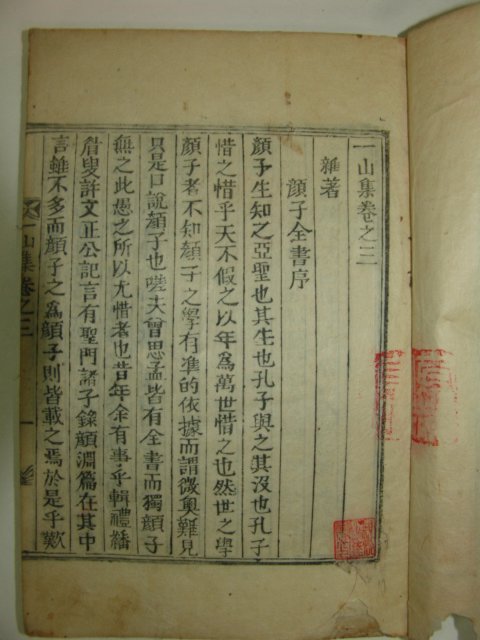 一山集卷之三
雜著
顔子全書序
顔子生知之亞聖也其生也孔子與之其沒也孔子
惜之惜乎天不假之以年爲萬世惜之也然世之學
顔子者不知顔子之學有準的依據而謂微奧難見
只是口說顔子也嗟夫曾思孟皆有全書而獨顔子
無之此愚之所以尤惜者也昔年余有事乎輯禮
眉叟許文正公記言有聖門諸子錄顔淵篇在其中
言雖不多而顔子之爲顔子則皆載之焉於是乎歎
一山集卷之三
一